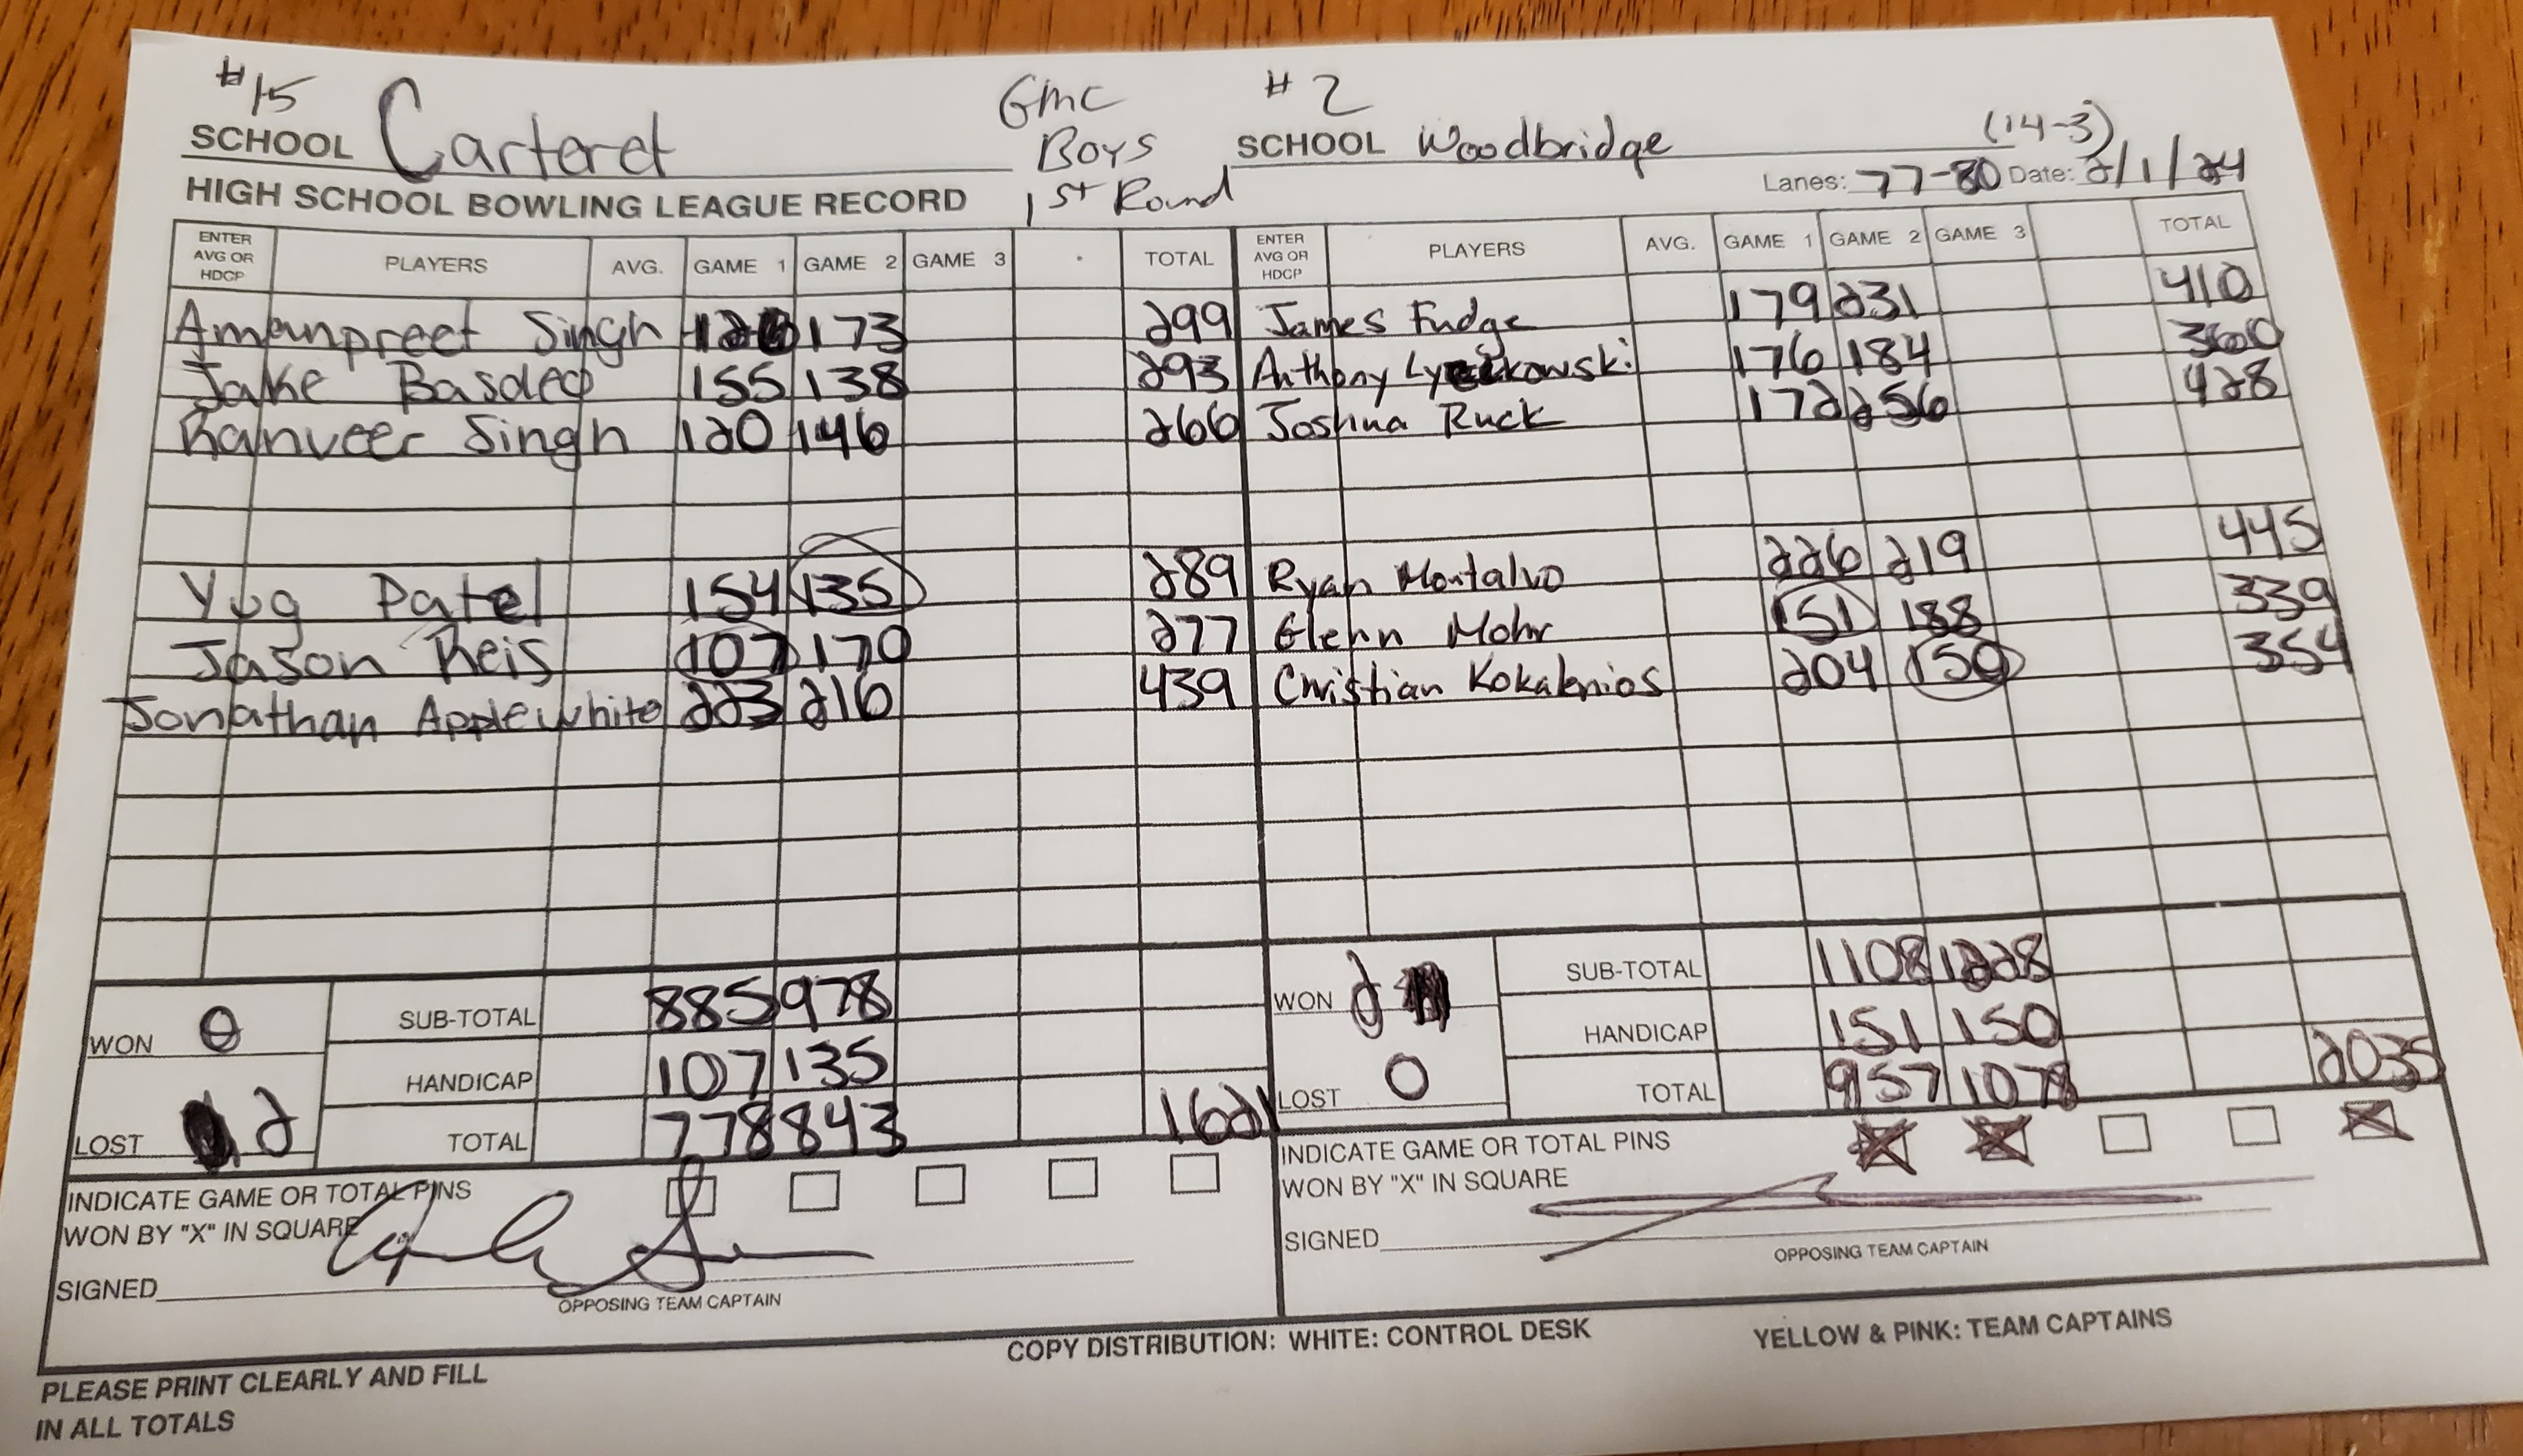 #15 GMC #2
SCHOOL Carteret Boys SCHOOL Woodbridge (14-3)
HIGH SCHOOL BOWLING LEAGUE RECORD 1st Round Lanes: 77-80 Date: 2/1/24
ENTER AVG OR HDCP PLAYERS AVG. GAME 1 GAME 2 GAME 3 TOTAL ENTER AVG OR HDCP PLAYERS AVG. GAME 1 GAME 2 GAME 3 TOTAL
Amanpreet Singh 126 173 299 James Fudge 179 231 410
Jake Basdeo 155 138 293 Anthony 176 184 360
Ranveer Singh 120 146 266 Joshua Ruck 172 256 428
Yug Patel 154 135 289 Ryan Montalvo 226 219 445
Jason Reis 107 170 277 Glenn Mohr 151 188 339
Jonathan Applewhite 223 216 439 Christian Kokalenios 204 150 354
WON 0 SUB-TOTAL 885 978 WON 2 SUB-TOTAL 1108 1228
HANDICAP 107 135 HANDICAP 151 150
LOST 2 TOTAL 778 843 1621 LOST 0 TOTAL 957 1078 2035
INDICATE GAME OR TOTAL PINS INDICATE GAME OR TOTAL PINS
WON BY "X" IN SQUARE WON BY "X" IN SQUARE
SIGNED SIGNED
OPPOSING TEAM CAPTAIN OPPOSING TEAM CAPTAIN
COPY DISTRIBUTION: WHITE: CONTROL DESK YELLOW & PINK: TEAM CAPTAINS
PLEASE PRINT CLEARLY AND FILL
IN ALL TOTALS